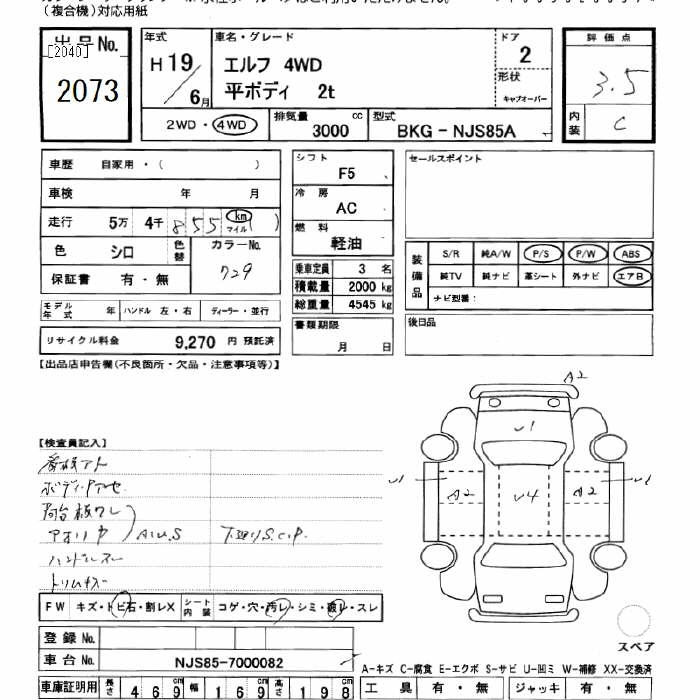 （複合機）対応用紙
出品No.
[2040]
2073
年式 車名・グレード ドア
H19 エルフ 4WD 2
6月 平ボディ 2t 形状
キャブオーバー
2WD・4WD 排気量 3000 cc 型式 BKG-NJS85A
評価点
3.5
内装 C
車歴 自家用・（ ）
車検 年 月
走行 5万 4千 855 km マイル ( )
色 シロ 色替 カラーNo.
729
保証書 有・無
モデル年式 年 ハンドル 左・右 ディーラー・並行
リサイクル料金 9,270 円 預託済
シフト
F5
冷房
AC
燃料
軽油
乗車定員 3 名
積載量 2000 kg
総重量 4545 kg
書類期限
月 日
セールスポイント
装備品 S/R 純A/W P/S P/W ABS
純TV 純ナビ 革シート 外ナビ エアB
ナビ型番：
後日品
【出品店申告欄(不良箇所・欠品・注意事項等)】
A2
U1
U1 A2 U4 A2 U1
【検査員記入】
看板アト
荷台板ワレ
アオリ A1U.S 下廻りS.C.P.
ハンドルスレ
トリムキズ
FW キズ・トビ石・割レX シート内装 コゲ・穴・汚レ・シミ・破レ・スレ
登録No.
車台No. NJS85-7000082
スペア
A-キズ C-腐食 E-エクボ S-サビ U-凹ミ W-補修 XX-交換済
車庫証明用 長さ 469cm 幅 169cm 高さ 198cm
工具 有・無 ジャッキ 有・無